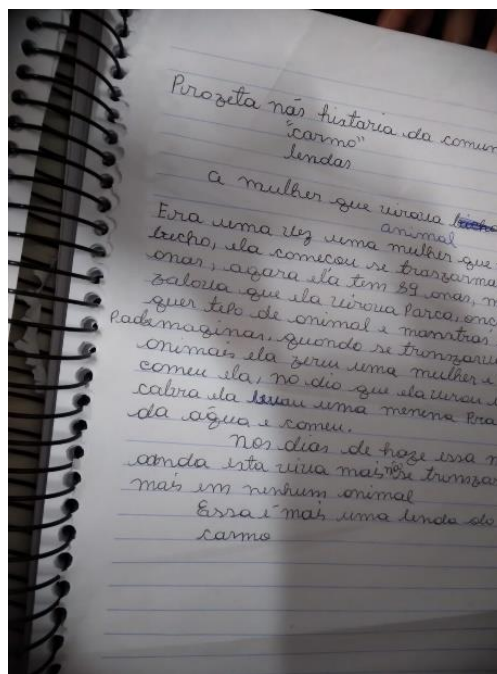 Pirozeta nas histaria da comun
"carmo"
lendas
a mulher que virava
animal
Era uma vez uma mulher que
bicho, ela começou se transzarma
anos, agara ela tem 89 anos, m
zalava que ela virava Parca, onç
quer tipo de animal e monstras
P.ademaginar, quando se tronzarv
animais ela zereu uma mulher e
comeu ela, no dia que ela virou
cabra ela levou uma menena Pra
da água e comeu.
Nos dias de hoze essa m
ainda esta viva mais não se tronzar
mais em nenhum animal
Essa é mais uma lenda do
carmo